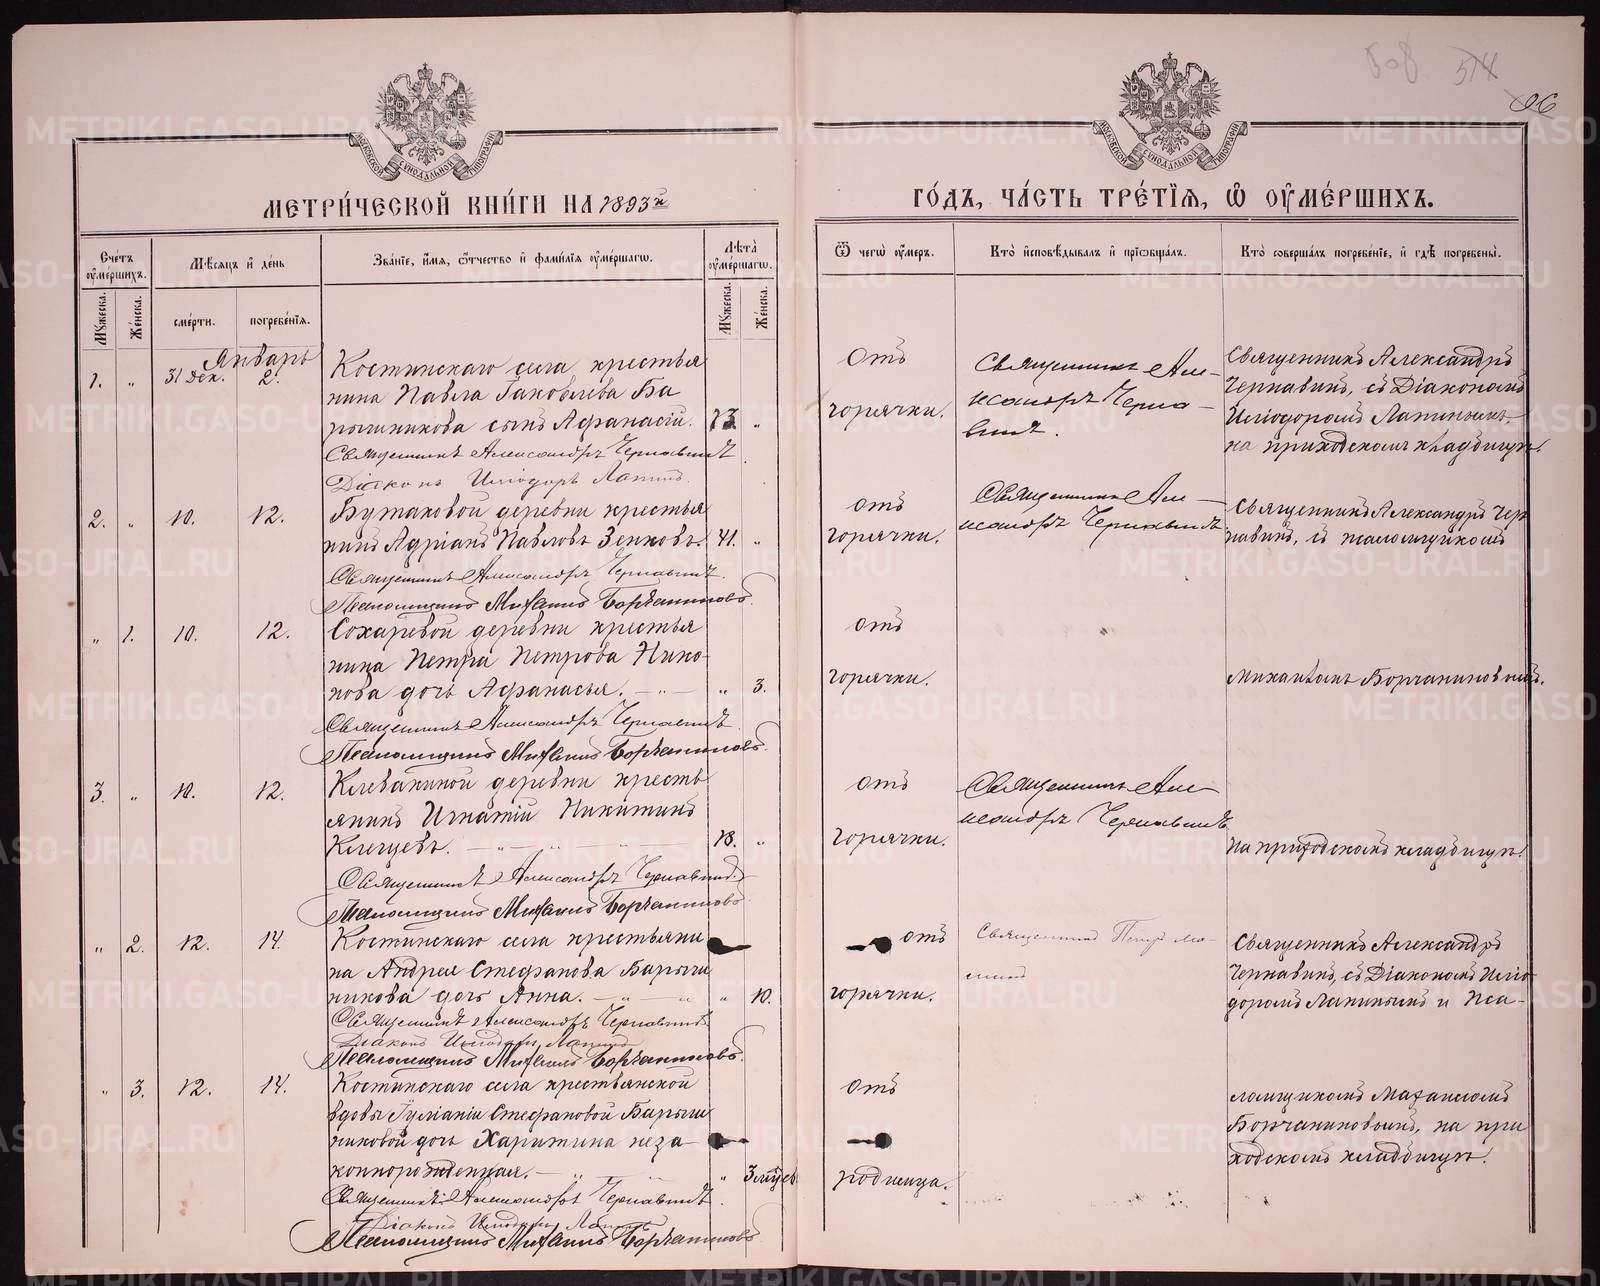 514
МЕТРИ́ЧЕСКОЙ КНИ́ГИ НА 1893й
ГО́ДЪ, ЧА́СТЬ ТРЕ́ТІѦ, Ѡ҆ ОУ҆МЕ́РШИХЪ.
Сче́тъ оу҆ме́ршихъ.
Мѣ́сяцъ и҆ де́нь
Зва́ніе, и҆́мя, ѻ҆́тчество и҆ фами́лія оу҆ме́ршагѡ.
Лѣ́та оу҆ме́ршагѡ.
Ѿ чегѡ̀ оу҆́меръ.
Кто̀ и҆сповѣ́дывалъ и҆ прїѻбща́лъ.
Кто̀ соверша́лъ погребе́ніе, и҆ гдѣ̀ погребены̀.
Мꙋ́жеска.
Же́нска.
сме́рти.
погребе́нія.
Мꙋ́жеска.
Же́нска.
Январь
1. „ 31 дек. 2.
Костинскаго села крестья
нина Павла Іаковлева Ба
рышникова сынъ Афанасій. 73 „
Священникъ Александръ Чернавинъ
Діаконъ Иліодоръ Лапинъ
отъ
горячки.
Священникъ Але-
ксандръ Черна-
винъ.
Священникъ Александръ
Чернавинъ, съ Діакономъ
Иліодоромъ Лапинымъ,
на приходскомъ кладбищѣ.
2. „ 10. 12.
Бутаковой деревни крестья
нинъ Адріанъ Павловъ Зенковъ. 41. „
Священникъ Александръ Чернавинъ.
Псаломщикъ Михаилъ Борчаниновъ.
отъ
горячки.
Священникъ Але-
ксандръ Чернавинъ.
Священникъ Александръ Чер
навинъ, съ псаломщикомъ
„ 1. 10. 12.
Сохаревой деревни крестья
нина Петра Петрова Нико-
нова дочь Афанасья. „ 3.
Священникъ Александръ Чернавинъ
Псаломщикъ Михаилъ Борчаниновъ.
отъ
горячки.
Михаиломъ Борчаниновымъ.
3. „ 10. 12.
Клевакиной деревни кресть
янинъ Игнатій Никитинъ
Клещевъ. 18. „
Священникъ Александръ Чернавинъ
Псаломщикъ Михаилъ Борчаниновъ.
отъ
горячки.
Священникъ Але-
ксандръ Чернавинъ
на приходскомъ кладбищѣ.
„ 2. 12. 14.
Костинскаго села крестьяни
на Андрея Стефанова Барыш
никова дочь Анна. „ 10.
Священникъ Александръ Чернавинъ
Діаконъ Иліодоръ Лапинъ
Псаломщикъ Михаилъ Борчаниновъ.
отъ
горячки.
Священникъ Петръ
Священникъ Александръ
Чернавинъ, съ Діакономъ Иліо
доромъ Лапинымъ и Пса-
„ 3. 12. 14.
Костинскаго села крестьянской
вдовы Іуліаніи Стефановой Барыш
никовой дочь Харитина неза-
коннорожденная. „ 3 мѣсяц.
Священникъ Александръ Чернавинъ.
Діаконъ Иліодоръ Лапинъ
Псаломщикъ Михаилъ Борчаниновъ.
отъ
родимца.
ломщикомъ Михаиломъ
Борчаниновымъ, на при
ходскомъ кладбищѣ.
METRIKI.GASO-URAL.RU